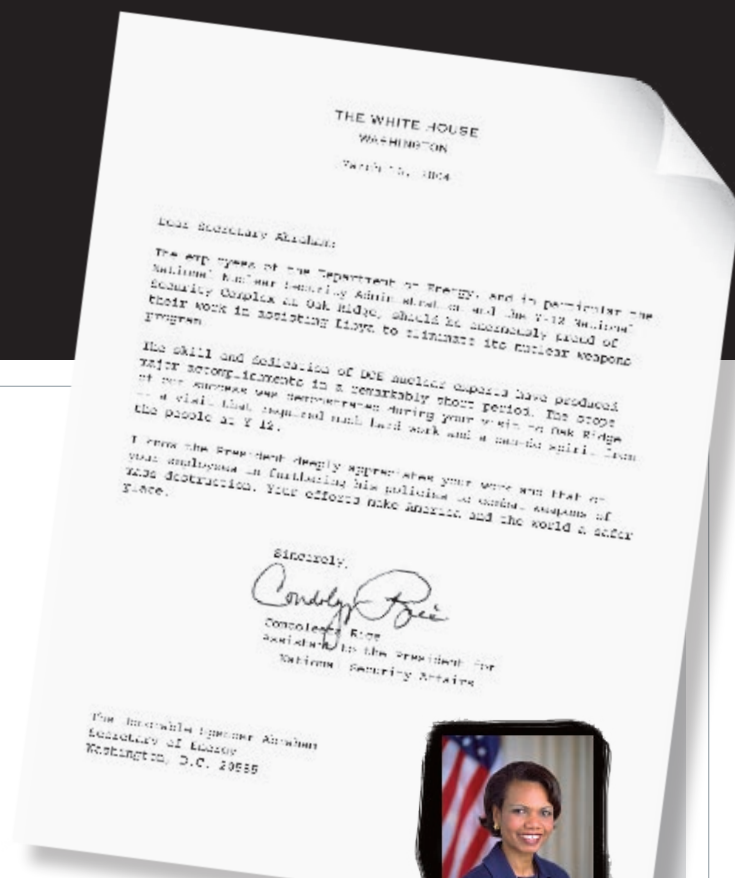 THE WHITE HOUSE
WASHINGTON
March 2004
Dear Secretary Abraham:
The employees of the Department of Energy, and in particular the
National Nuclear Security Administration and the Y-12 National
Security Complex at Oak Ridge, should be enormously proud of
their work in assisting Libya to eliminate its nuclear weapons
program.
The skill and dedication of DOE nuclear experts have produced
major accomplishments in a remarkably short period. The scope
of our success was demonstrated during your visit to Oak Ridge
a visit that required much hard work and a can-do spirit from
the people at Y-12.
I know the President deeply appreciates your work and that of
your employees in furthering his policies to combat weapons of
mass destruction. Your efforts make America and the world a safer
place.
Sincerely,
Condoleezza Rice
Assistant to the President for
National Security Affairs
The Honorable Spencer Abraham
Secretary of Energy
Washington, D.C. 20585